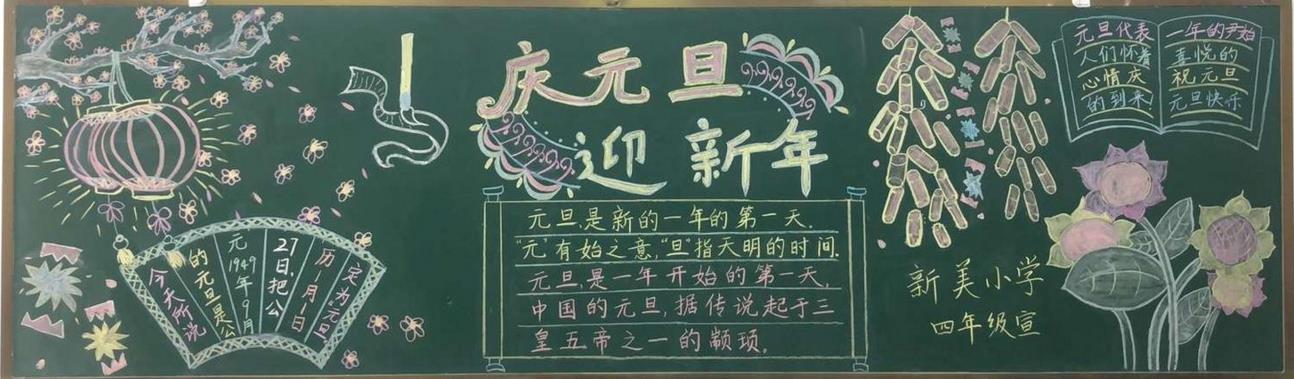 庆元旦
迎新年
今天所说
的元旦是公
元1949年9月
27日，把公
历一月一日
定为“元旦”
元旦，是新的一年的第一天．
“元”有始之意，“旦”指天明的时间．
元旦，是一年开始的第一天，
中国的元旦，据传说起于三
皇五帝之一的颛顼。
元旦代表 一年的尹始
人们怀着 喜悦的
心情庆 祝元旦
的到来 元旦快乐
新美小学
四年级宣